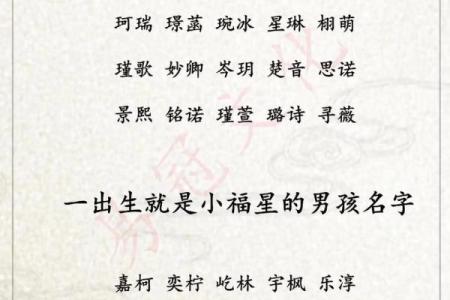 珂瑞 璟菡 琬冰 星琳 栩萌
瑾歌 妙卿 岑玥 楚音 思诺
景熙 铭诺 瑾萱 璐诗 寻薇
一出生就是小福星的男孩名字
嘉柯 奕柠 屹林 宇枫 乐淳
易冠文化